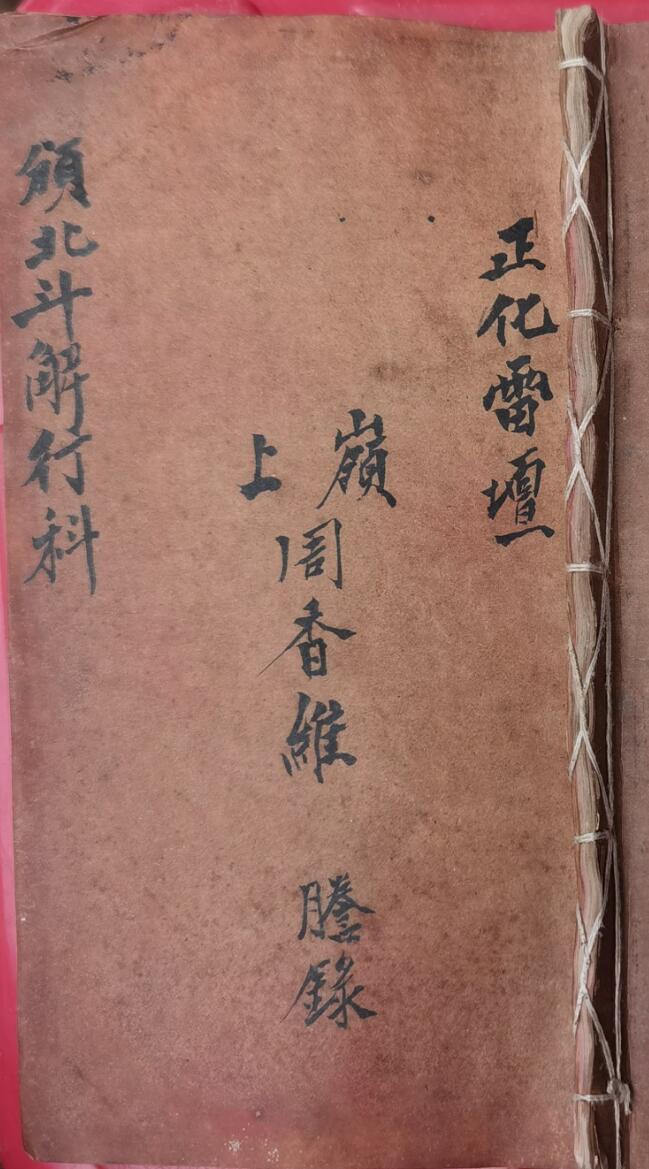 正化雷壇
嶺上
周香維 謄錄
頒北斗解行科